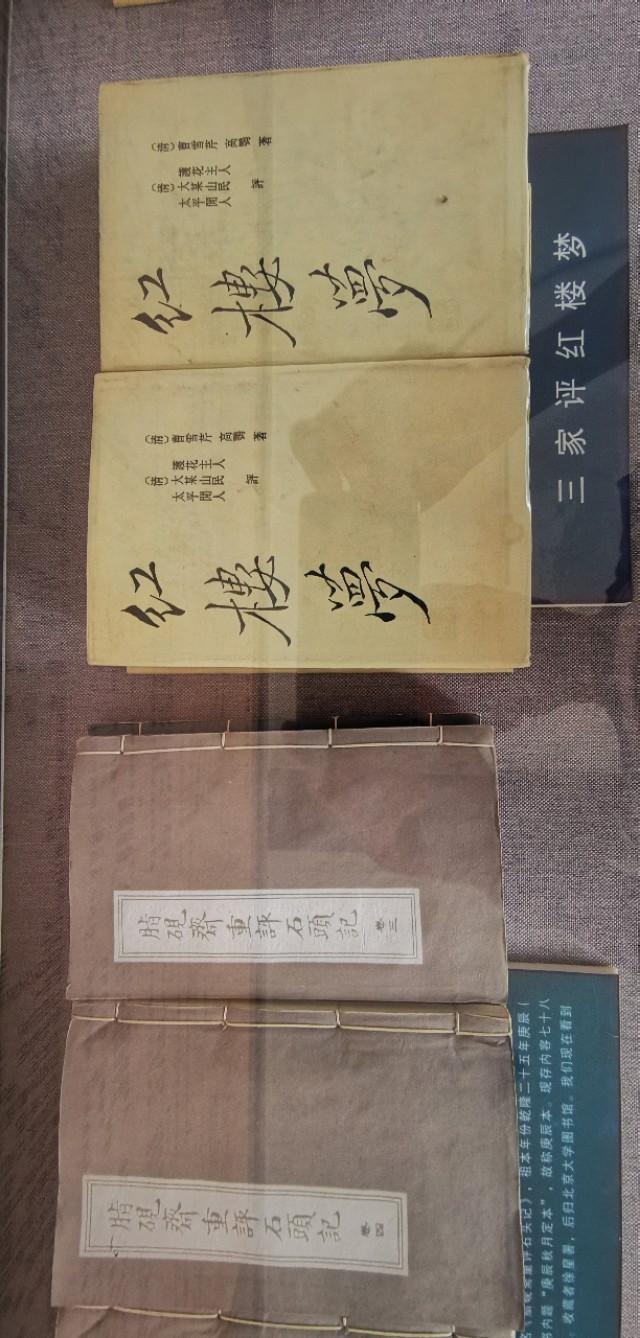 (清)曹雪芹 高鹗 著
護花主人
(清)大某山民 評
太平閒人
紅樓夢
(清)曹雪芹 高鹗 著
護花主人
(清)大某山民 評
太平閒人
紅樓夢
三家评红楼梦
脂硯齋重評石頭記 卷三
脂硯齋重評石頭記 卷四
重评石头记》，祖本年份乾隆二十五年庚辰（
内题“庚辰秋月定本”，故称庚辰本。现存内容七十八
收藏者徐星署，后归北京大学图书馆。我们现在看到